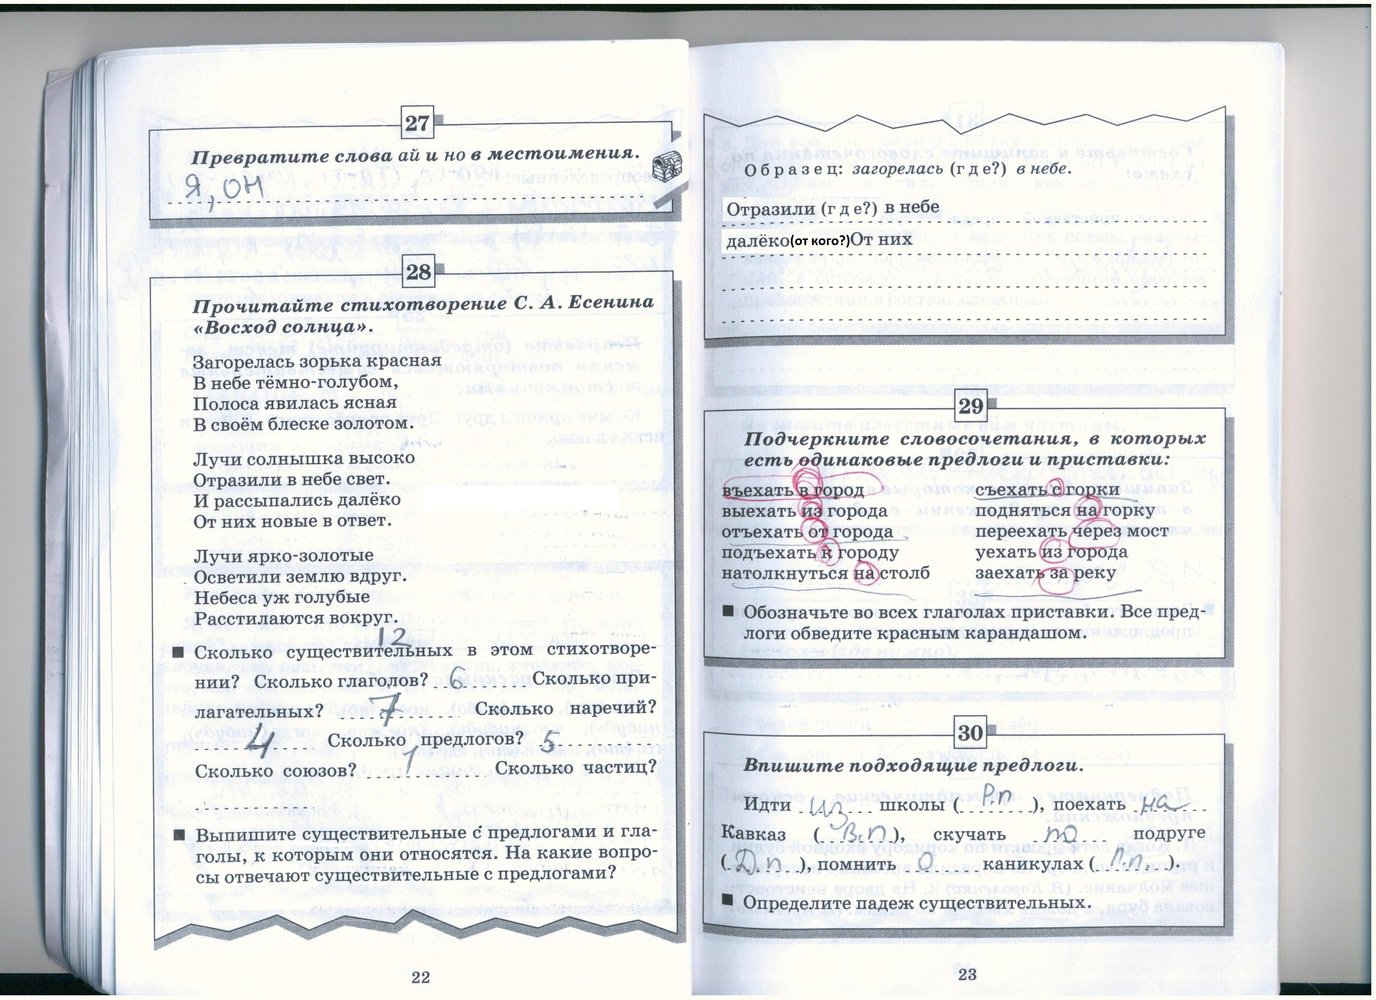 27
Превратите слова ай и но в местоимения.
Я, ОН
28
Прочитайте стихотворение С. А. Есенина
«Восход солнца».
Загорелась зорька красная
В небе тёмно-голубом,
Полоса явилась ясная
В своём блеске золотом.
Лучи солнышка высоко
Отразили в небе свет.
И рассыпались далёко
От них новые в ответ.
Лучи ярко-золотые
Осветили землю вдруг.
Небеса уж голубые
Расстилаются вокруг.
12
Сколько существительных в этом стихотворе-
нии? Сколько глаголов? 6 Сколько при-
лагательных? 7 Сколько наречий?
4 Сколько предлогов? 5
Сколько союзов? 1 Сколько частиц?
Выпишите существительные с предлогами и гла-
голы, к которым они относятся. На какие вопро-
сы отвечают существительные с предлогами?
22
Образец: загорелась (где?) в небе.
Отразили (где?) в небе
далёко(от кого?)От них
29
Подчеркните словосочетания, в которых
есть одинаковые предлоги и приставки:
въехать в город съехать с горки
выехать из города подняться на горку
отъехать от города переехать через мост
подъехать к городу уехать из города
натолкнуться на столб заехать за реку
Обозначьте во всех глаголах приставки. Все пред-
логи обведите красным карандашом.
30
Впишите подходящие предлоги.
Идти из школы (Р.п), поехать на
Кавказ (В.п.), скучать по подруге
(Д.п), помнить о каникулах (П.п.).
Определите падеж существительных.
23